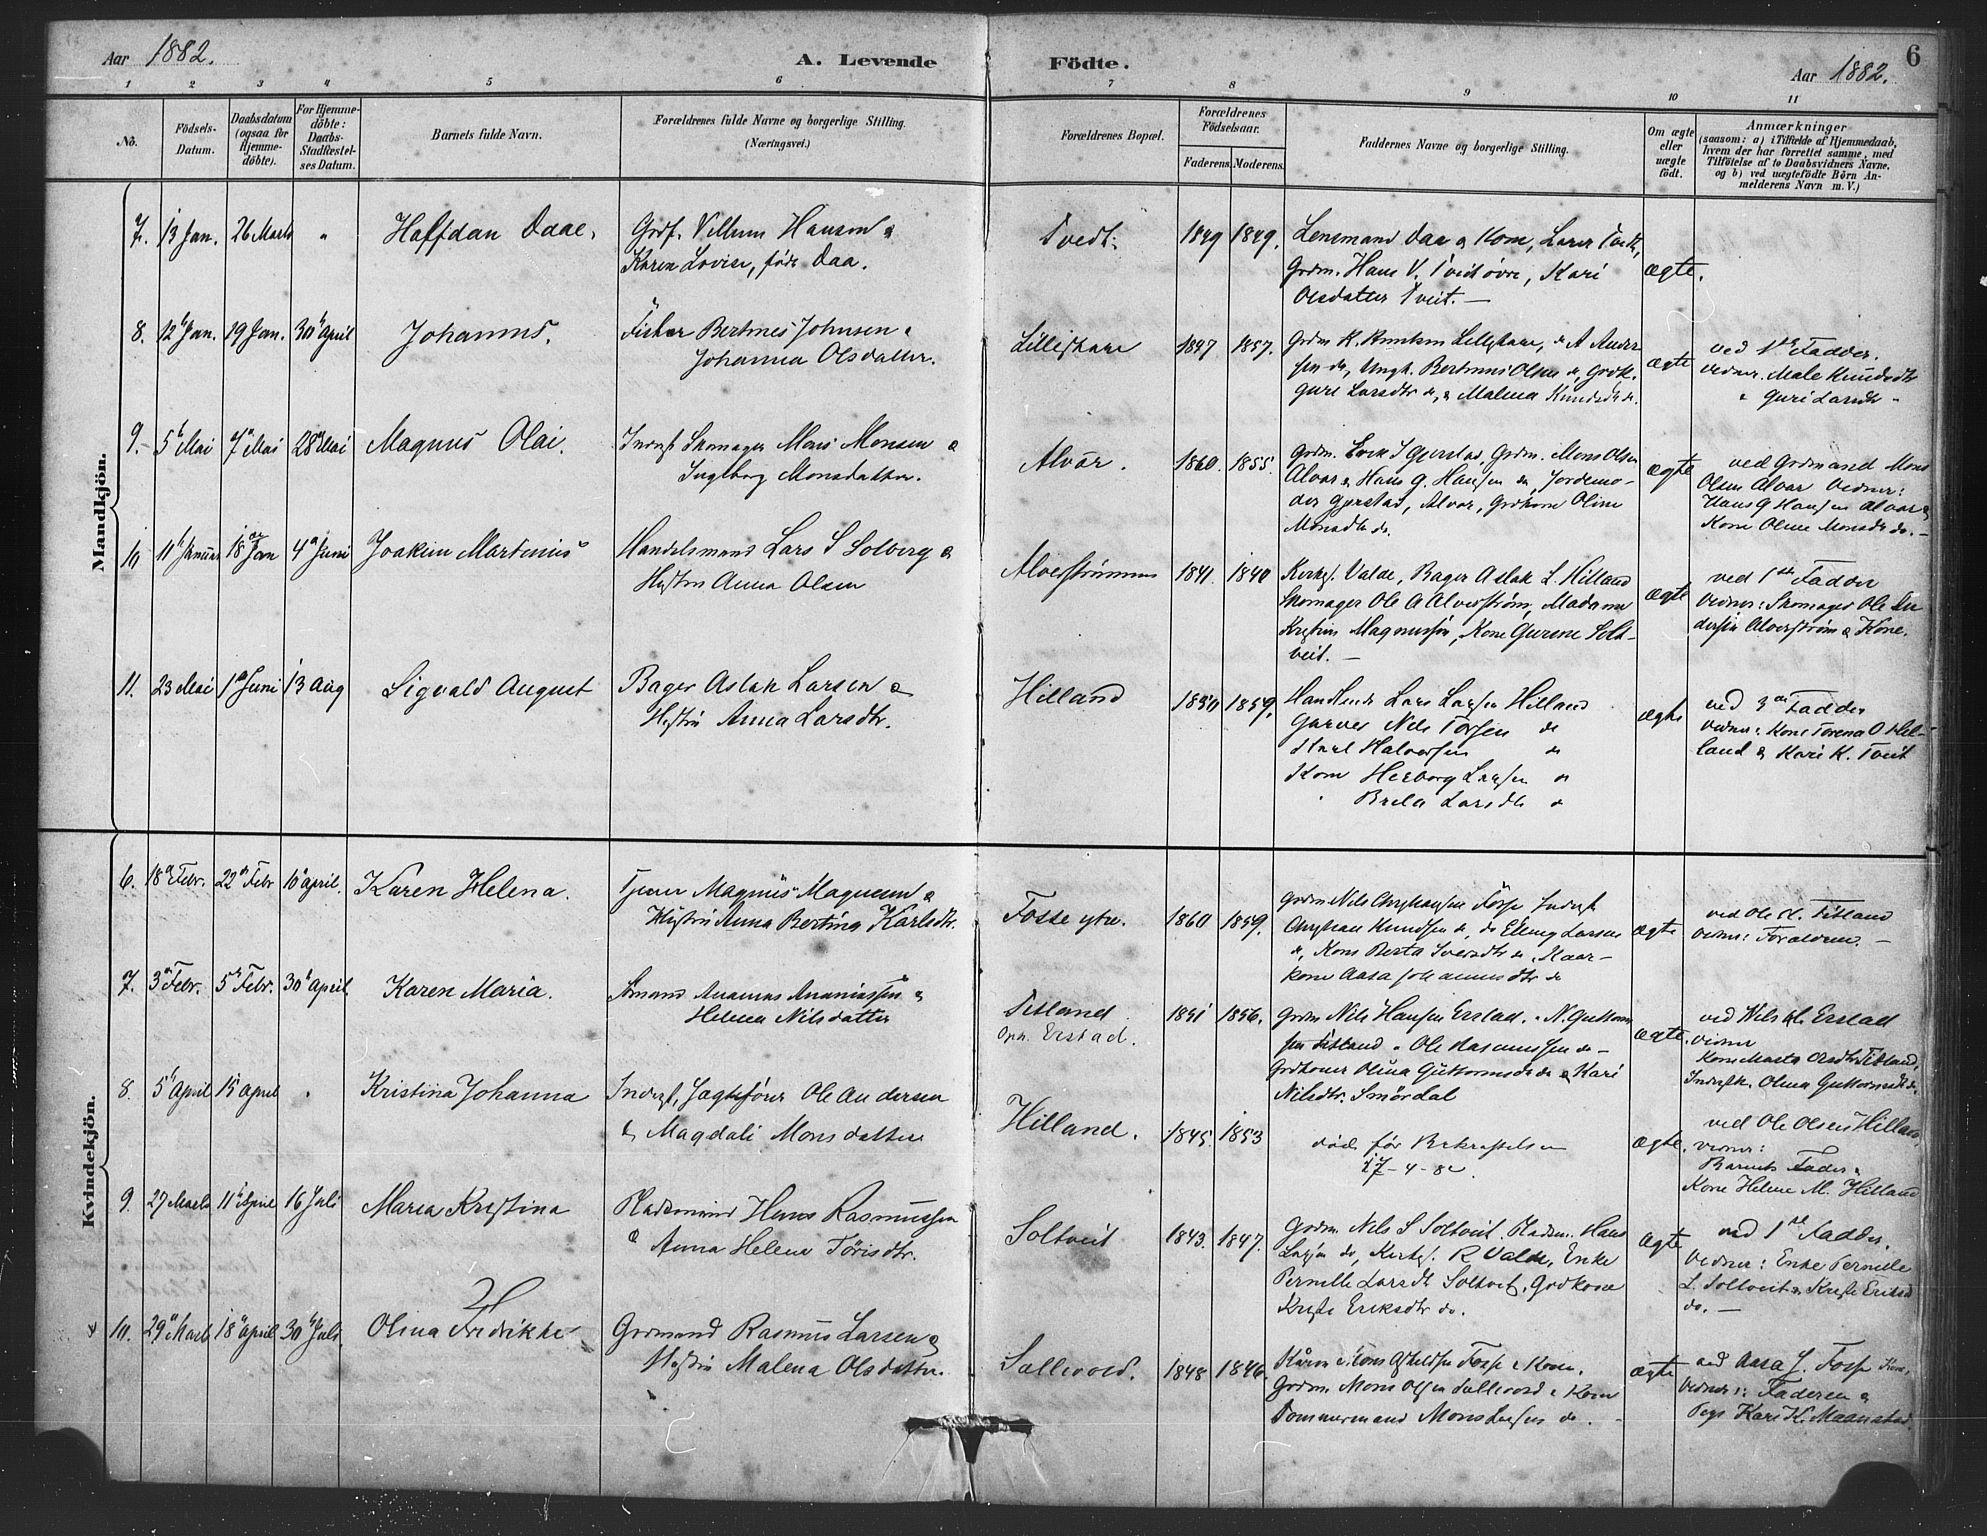 Aar 1882.
A. Levende Födte.
Aar 1882.
6
1 2 3 4 5 6 7 8 9 10 11
No.
Födsels-Datum.
Daabsdatum (ogsaa for Hjemmedöbte).
For Hjemmedöbte: Daabs-Stadfæstelses Datum.
Barnets fulde Navn.
Forældrenes fulde Navne og borgerlige Stilling.
(Næringsvei.)
Forældrenes Bopæl.
Forældrenes Födselsaar.
Faderens. Moderens.
Faddernes Navne og borgerlige Stilling.
Om ægte eller uægte födt.
Anmærkninger
(saasom: a) i Tilfælde af Hjemmedaab,
hvem der har forrettet samme, med
Tilföielse af to Daabsvidners Navne,
og b) ved uægtefödte Börn An-
melderens Navn m. V.)
Mandkjön.
7. 13 Jan. 26 Marts " Halfdan Daae.
Grdf. Villum Hanson &
Karen Lovise, föde Daa.
Tvedt.
1849 1849.
Lensmand Daa & Kone, Lærer Tvedt,
Grdm. Hans V. Tveit övre, Kari
Olsdatter Tveit. —
ægte.
8. 12 Jan. 19 Jan. 30 April Johannes.
Fisker Bertines Johnsen &
Johanna Olsdatter.
Lilleskare
1847 1857.
Grdm K. Knutsen Lilleskare, do A Ander
sen do, Ungk. Bertinus Olsen do, Grdk.
Guri Larsdtr do, & Malena Knudsdtr do.
ægte
ved 1ste Fadder.
Vidner. Male Knudsdtr
" Guri Larsdtr "
9. 5 Mai 7 Mai 28 Mai Magnus Olai.
Inderst Skomager Mons Monsen &
Ingeborg Monsdatter.
Alvär.
1860. 1855.
Gjerstad, Grdm. Mons Olsen
Alvær & Hans G. Hansen do, Jordemo-
der Gjerstad, Alvær, Grdkone Oline
Monsdtr do.
ægte
ved Grdmand Mons
Olsen Alvær Vidner:
Hans G Hansen Alvær &
Kone Oline Monsdtr do. —
10 11 Januar 18 Jan 4 Juni Joakim Martinius
Handelsmand Lars S Solberg &
Hustru Anna Olsen
Alverströmmen
1841. 1840
Kirkes. Valde, Bager Aslak L. Hilland
Skomager Ole A Alverström, Madame
Kristine Magnussen, Kone Gurine Solt-
veit. —
ægte
ved 1ste Fadder
Vidner: Skomager Ole An
dersen Alverström & Kone.
11. 23 Mai 1 Juni 13 Aug Sigvald August
Bager Aslak Larsen &
Hustru Anna Larsdtr.
Hilland
1850 1859.
Handlende Lars Larsen Hilland
Garver Nils Torsen do
Karl Halversen do
Kone Herborg Larsen do
" Brita Larsdtr do
ægte
ved 3die Fadder
Vidner: Kone Torena O Hil-
land & Kari K. Tveit
Kvindekjön.
6. 18 Febr. 22 Febr 10 April. Karen Helena.
Tjener Magnus Magnesen &
Hustru Anna Bertina Karlsdtr.
Fosse ytre.
1860 1859.
Grdm Nils Fosse Inderst
Knudsen do, do Elling Larsen
do, Kone Berta Iversdtr do, Kaar-
kone Aasa Johannesdtr do
ægte
ved Ole N. Titland
Vidner: Forældrene. —
7. 3 Febr. 5 Febr. 30 April. Karen Maria.
Sömand Ananias Ananiassen &
Helena Nilsdatter
Titland.
oph. Erstad.
1851 1856.
Grdm Nils Hansen Erstad. N. Guttorm
sen Titland " Ole Rasmussen do —
Grdkoner Olina Guttormsdtr do & Kari
Nilsdtr. Smördal
ægte.
ved Nils H. Erstad
Vidner
Kone Marta Titland,
Inderstk. Olina Guttormsdtr do.
8. 5 April 15 April " Kristina Johanna
Inderst, Jagtefører Ole Andersen
& Magdali Monsdatter
Hilland.
1845. 1853
död för Bekræftelsen
17-4-82.
ægte.
ved Ole Olsen Hilland,
Vidner:
Barnets Fader &
Kone Helene M. Hilland
9. 27 Marts 11 April 16 Juli Maria Kristina
Pladsmand Hans Rasmussen
& Anna Helene Törisdtr.
Soltveit
1843. 1847.
Grdm. Nils S Soltveit, Pladsm. Hans
Larsen do, Kirkes. R Valde, Enke
Pernille Larsdtr Soltveit, Grdkone
Eriksdtr do.
ægte
ved 1ste Fadder.
Vidner: Enke Pernille
L. Soltveit & Eriksd
do. —
10. 29 Marts 18 April 30 Juli Olina Fredrikke
Grdmand Rasmus Larsen &
Hustru Malena Olsdatter.
Sellevold.
1848 1846.
Mons Fosse & Kone.
Grdm. Mons Olsen Sellevold & Kone
Tömmermand Mons Larsen do. —
ægte
ved Aasa J. Fosse Kone,
Vidner: Faderen &
Pige Kari K. Maanstad.